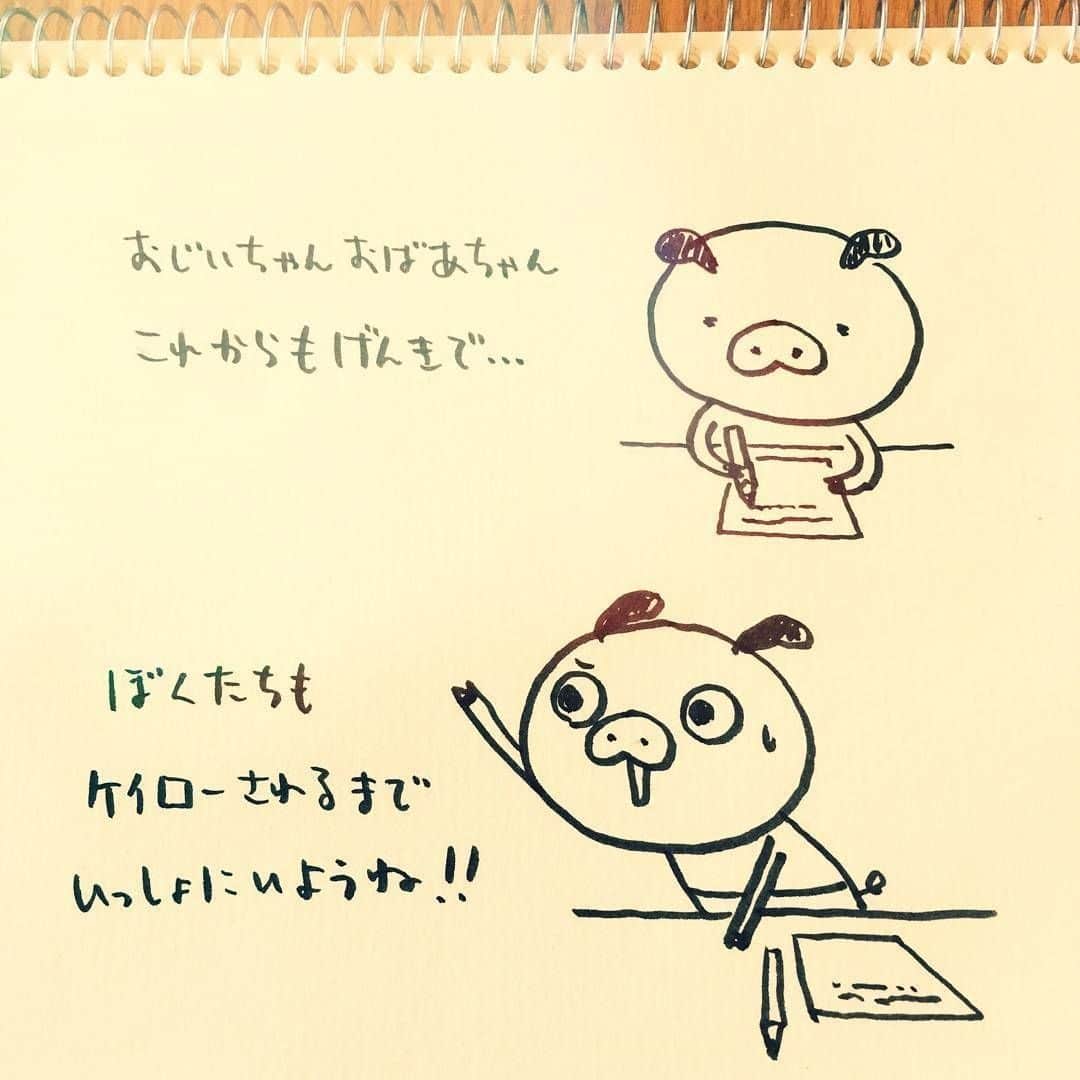 おじいちゃん おばあちゃん
これからもげんきで...
ぼくたちも
ケイローされるまで
いっしょにいようね!!